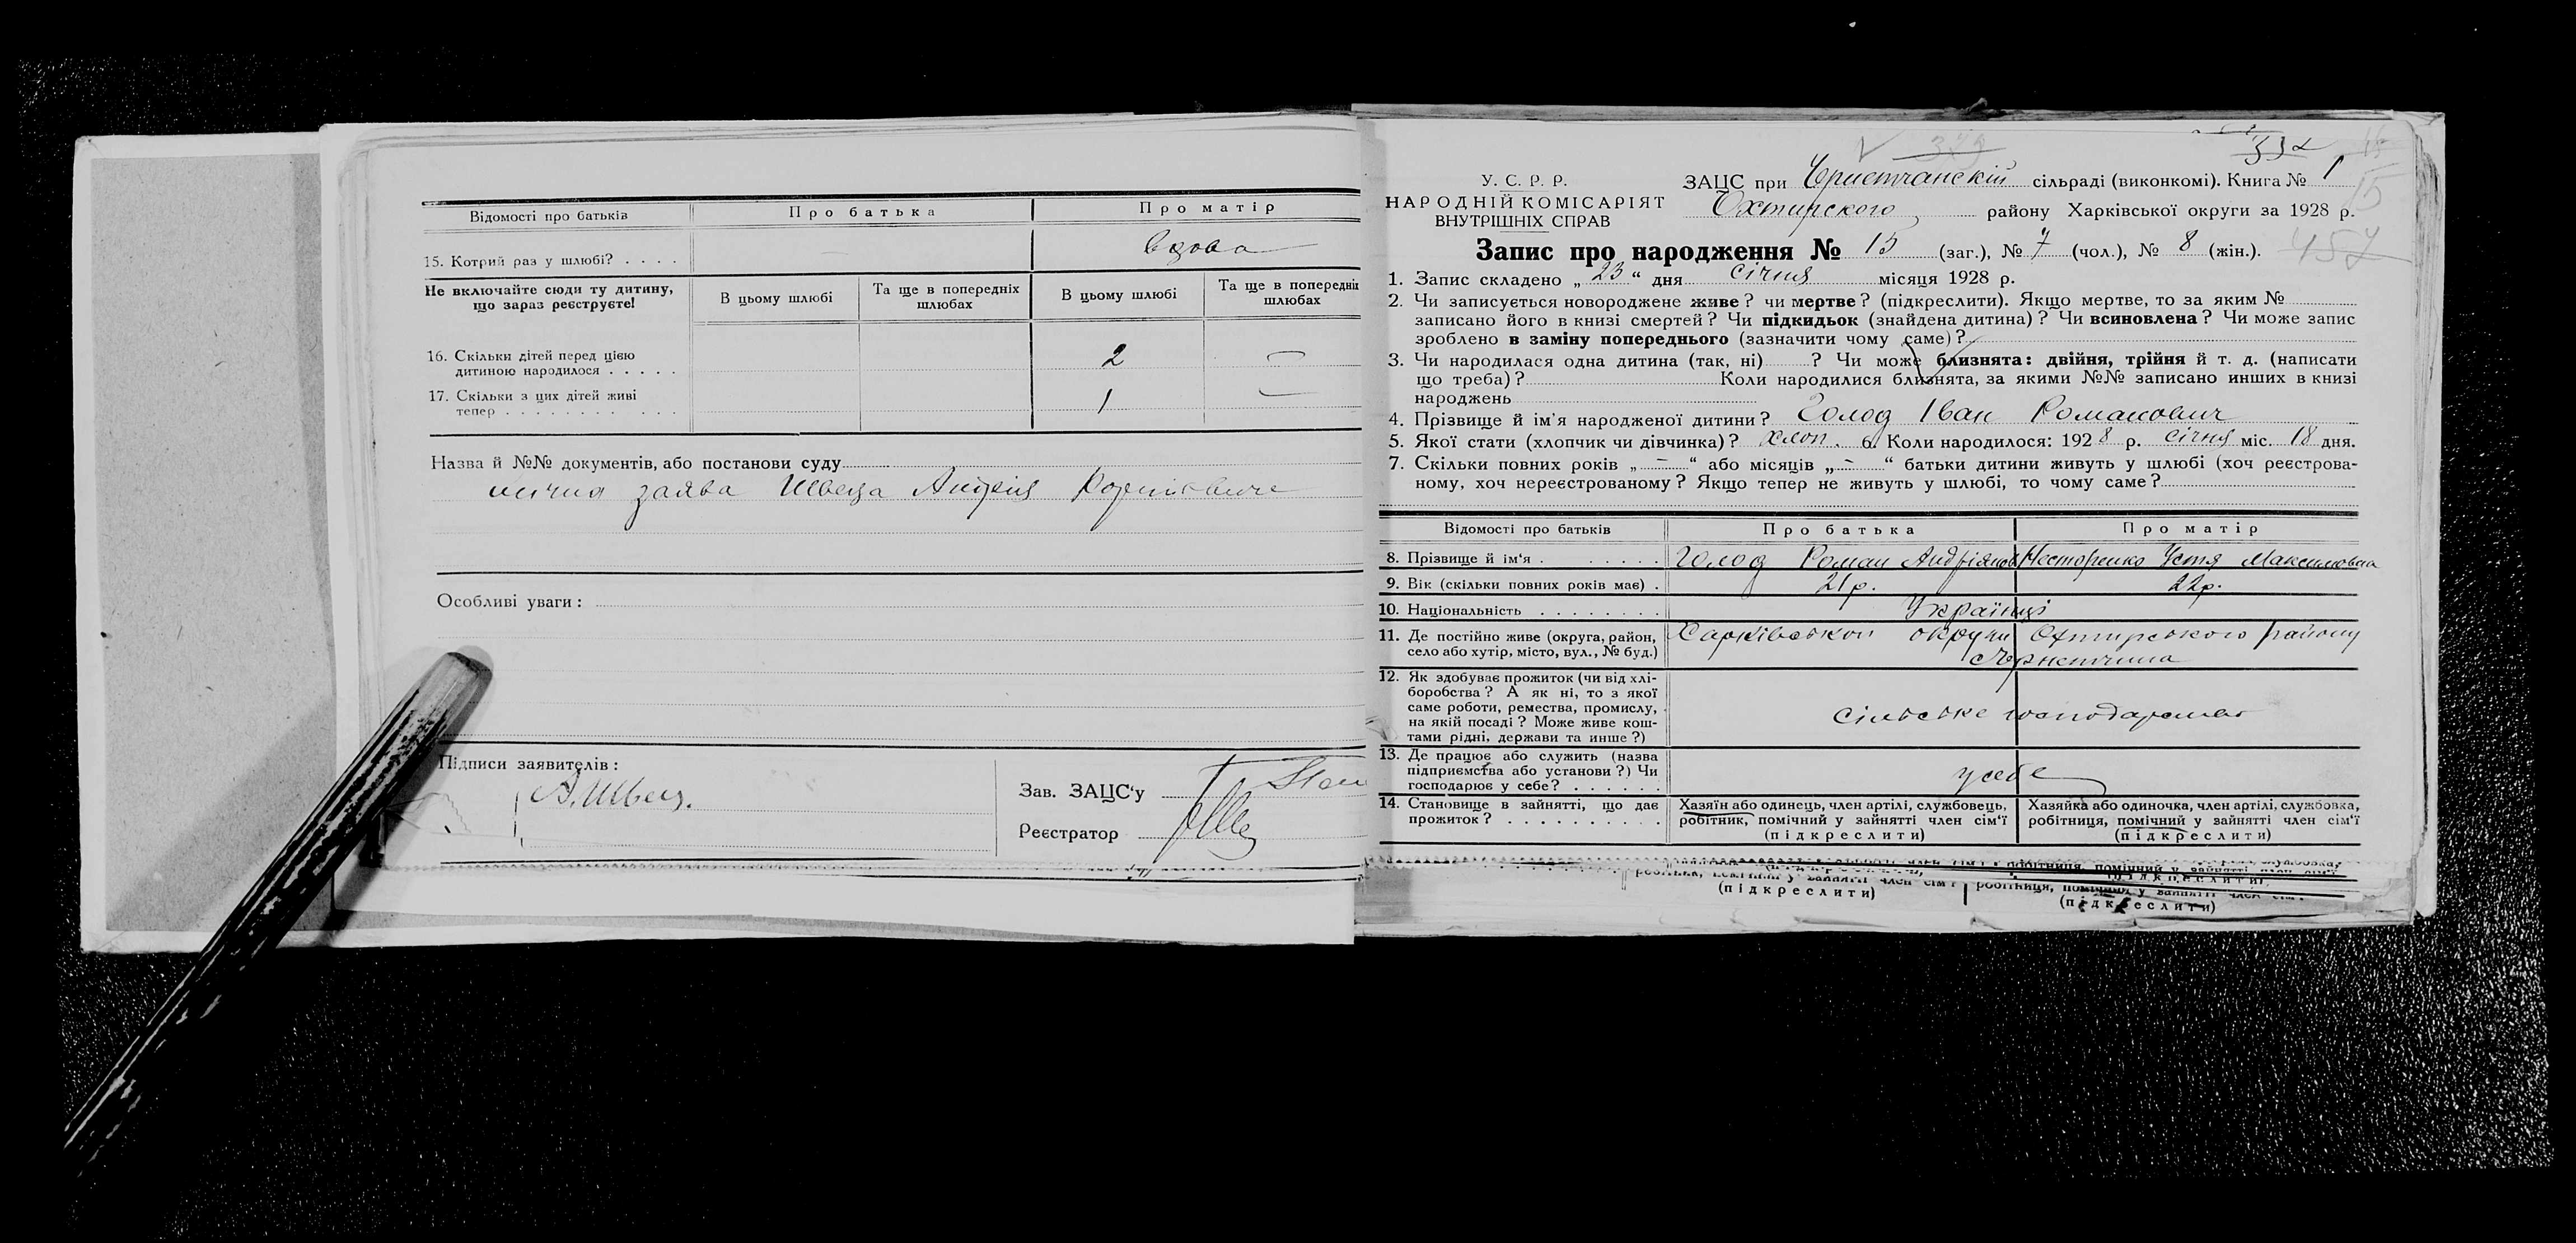 Відомості про батьків Про батька Про матір
15. Котрий раз у шлюбі? . . . . — вдова
Не включайте сюди ту дитину, що зараз реєструєте! В цьому шлюбі Та ще в попередніх шлюбах В цьому шлюбі Та ще в попередніх шлюбах
16. Скільки дітей перед цією
дитиною народилося . . . . . 2 —
17. Скільки з цих дітей живі
тепер . . . . . . . . . . . . 1 —
Назва й №№ документів, або постанови суду
заява Швеца Андрія
Особливі уваги:
Підписи заявителів:
А. Швец.
Зав. ЗАЦС'у
Реєстратор
У. С. Р. Р.
НАРОДНІЙ КОМІСАРІЯТ
ВНУТРІШНІХ СПРАВ
ЗАЦС при сільраді (виконкомі). Книга № 1
Охтирского району Харківської округи за 1928 р.
15
457
Запис про народження № 15 (заг.), № 7 (чол.), № 8 (жін.).
1. Запис складено „23“ дня січня місяця 1928 р.
2. Чи записується новороджене живе? чи мертве? (підкреслити). Якщо мертве, то за яким №
записано його в книзі смертей? Чи підкидьок (знайдена дитина)? Чи всиновлена? Чи може запис
зроблено в заміну попереднього (зазначити чому саме)?
3. Чи народилася одна дитина (так, ні) ? Чи може близнята: двійня, трійня й т. д. (написати
що треба)? Коли народилися близнята, за якими №№ записано инших в книзі
народжень
4. Прізвище й ім'я народженої дитини? Голод Іван Романович
5. Якої стати (хлопчик чи дівчинка)? хлоп. 6. Коли народилося: 1928 р. січня міс. 18 дня.
7. Скільки повних років „—“ або місяців „—“ батьки дитини живуть у шлюбі (хоч реєстрова-
ному, хоч нереєстрованому? Якщо тепер не живуть у шлюбі, то чому саме?
Відомості про батьків Про батька Про матір
8. Прізвище й ім'я . . . . . . Голод Роман Андріянов Несторенко Устя Максимовна
9. Вік (скільки повних років має) . 21 р. 22 р.
10. Національність . . . . . . . . Українці
11. Де постійно живе (округа, район,
село або хутір, місто, вул., № буд.) Харківської округи Охтирського району
с. Чернетчина
12. Як здобуває прожиток (чи від хлі-
боробства? А як ні, то з якої
саме роботи, ремества, промислу,
на якій посаді? Може живе кош-
тами рідні, держави та инше?) сільське господарство
13. Де працює або служить (назва
підприємства або установи?) Чи
господарює у себе? . . . . . . у себе
14. Становище в зайнятті, що дає
прожиток? . . . . . . . . . .
Хазяїн або одинець, член артілі, службовець,
робітник, помічний у зайнятті член сім'ї
(підкреслити)
Хазяйка або одиночка, член артілі, службовка,
робітниця, помічний у зайнятті член сім'ї
(підкреслити)
(підкреслити)
робітниця, помічний у зайнятті член сім'ї
(підкреслити)